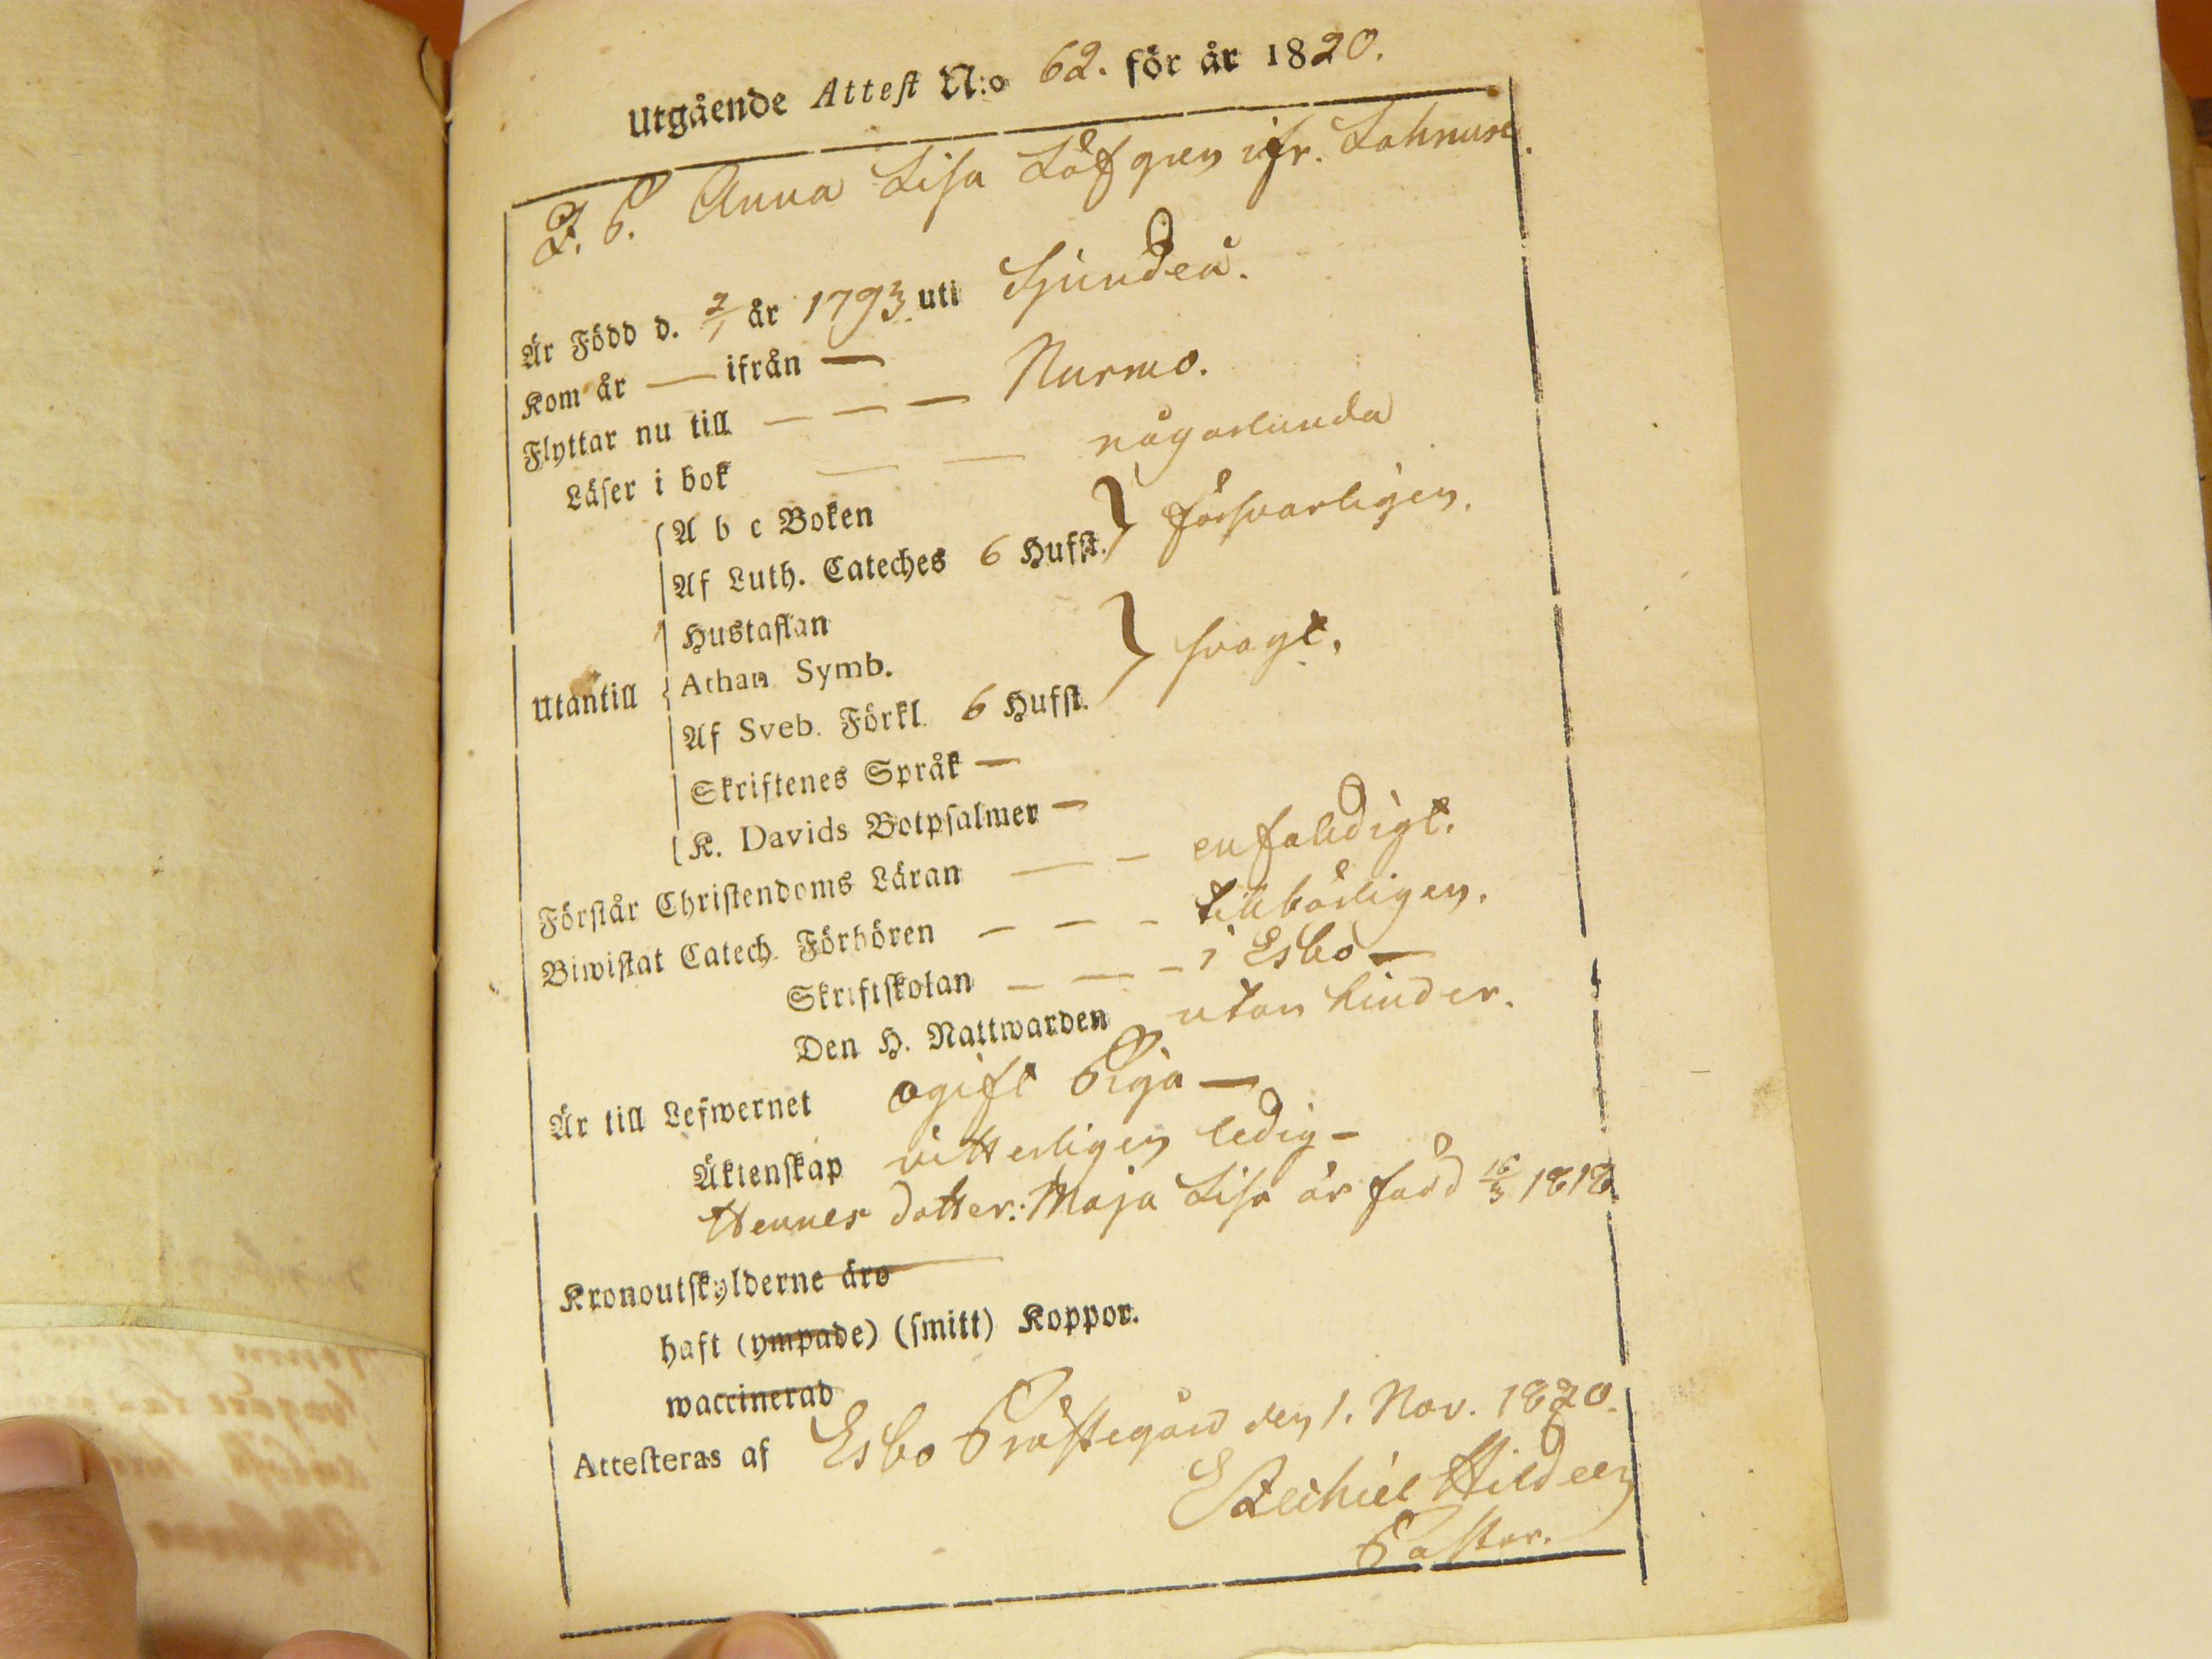 Utgående Attest N:o 62. för år 1820.
F. P. Anna Lisa Löfgren ifr. Lahnus.
Är Född d. 2/1 år 1793. uti Sjundeå.
Kom år — ifrån —
Flyttar nu till — — — Nurmo.
Läser i bok — — någorlunda
A b c Boken
Af Luth. Cateches 6 Hufst. } försvarligen.
Hustaflan
Athan Symb. } svagt.
Utantill
Af Sveb. Förkl. 6 Hufst.
Skriftenes Språk —
K. Davids Botpsalmer —
Förstår Christendoms Läran — — enfaldigt.
Biwistat Catech. Förhören — — — tillbörligen.
Skriftskolan — — — i Esbo —
Den H. Nattwarden utan hinder.
Är till Lefwernet ogift Piga —
Äktenskap vitterligen ledig –
Hennes dotter: Maja Lisa är född 16/3 1818.
Kronoutskylderne äro
haft (ympade) (smitt) Koppor.
waccinerad
Attesteras af Esbo Prästegård den 1. Nov. 1820.
Ezechiel Hildeen
Pastor.